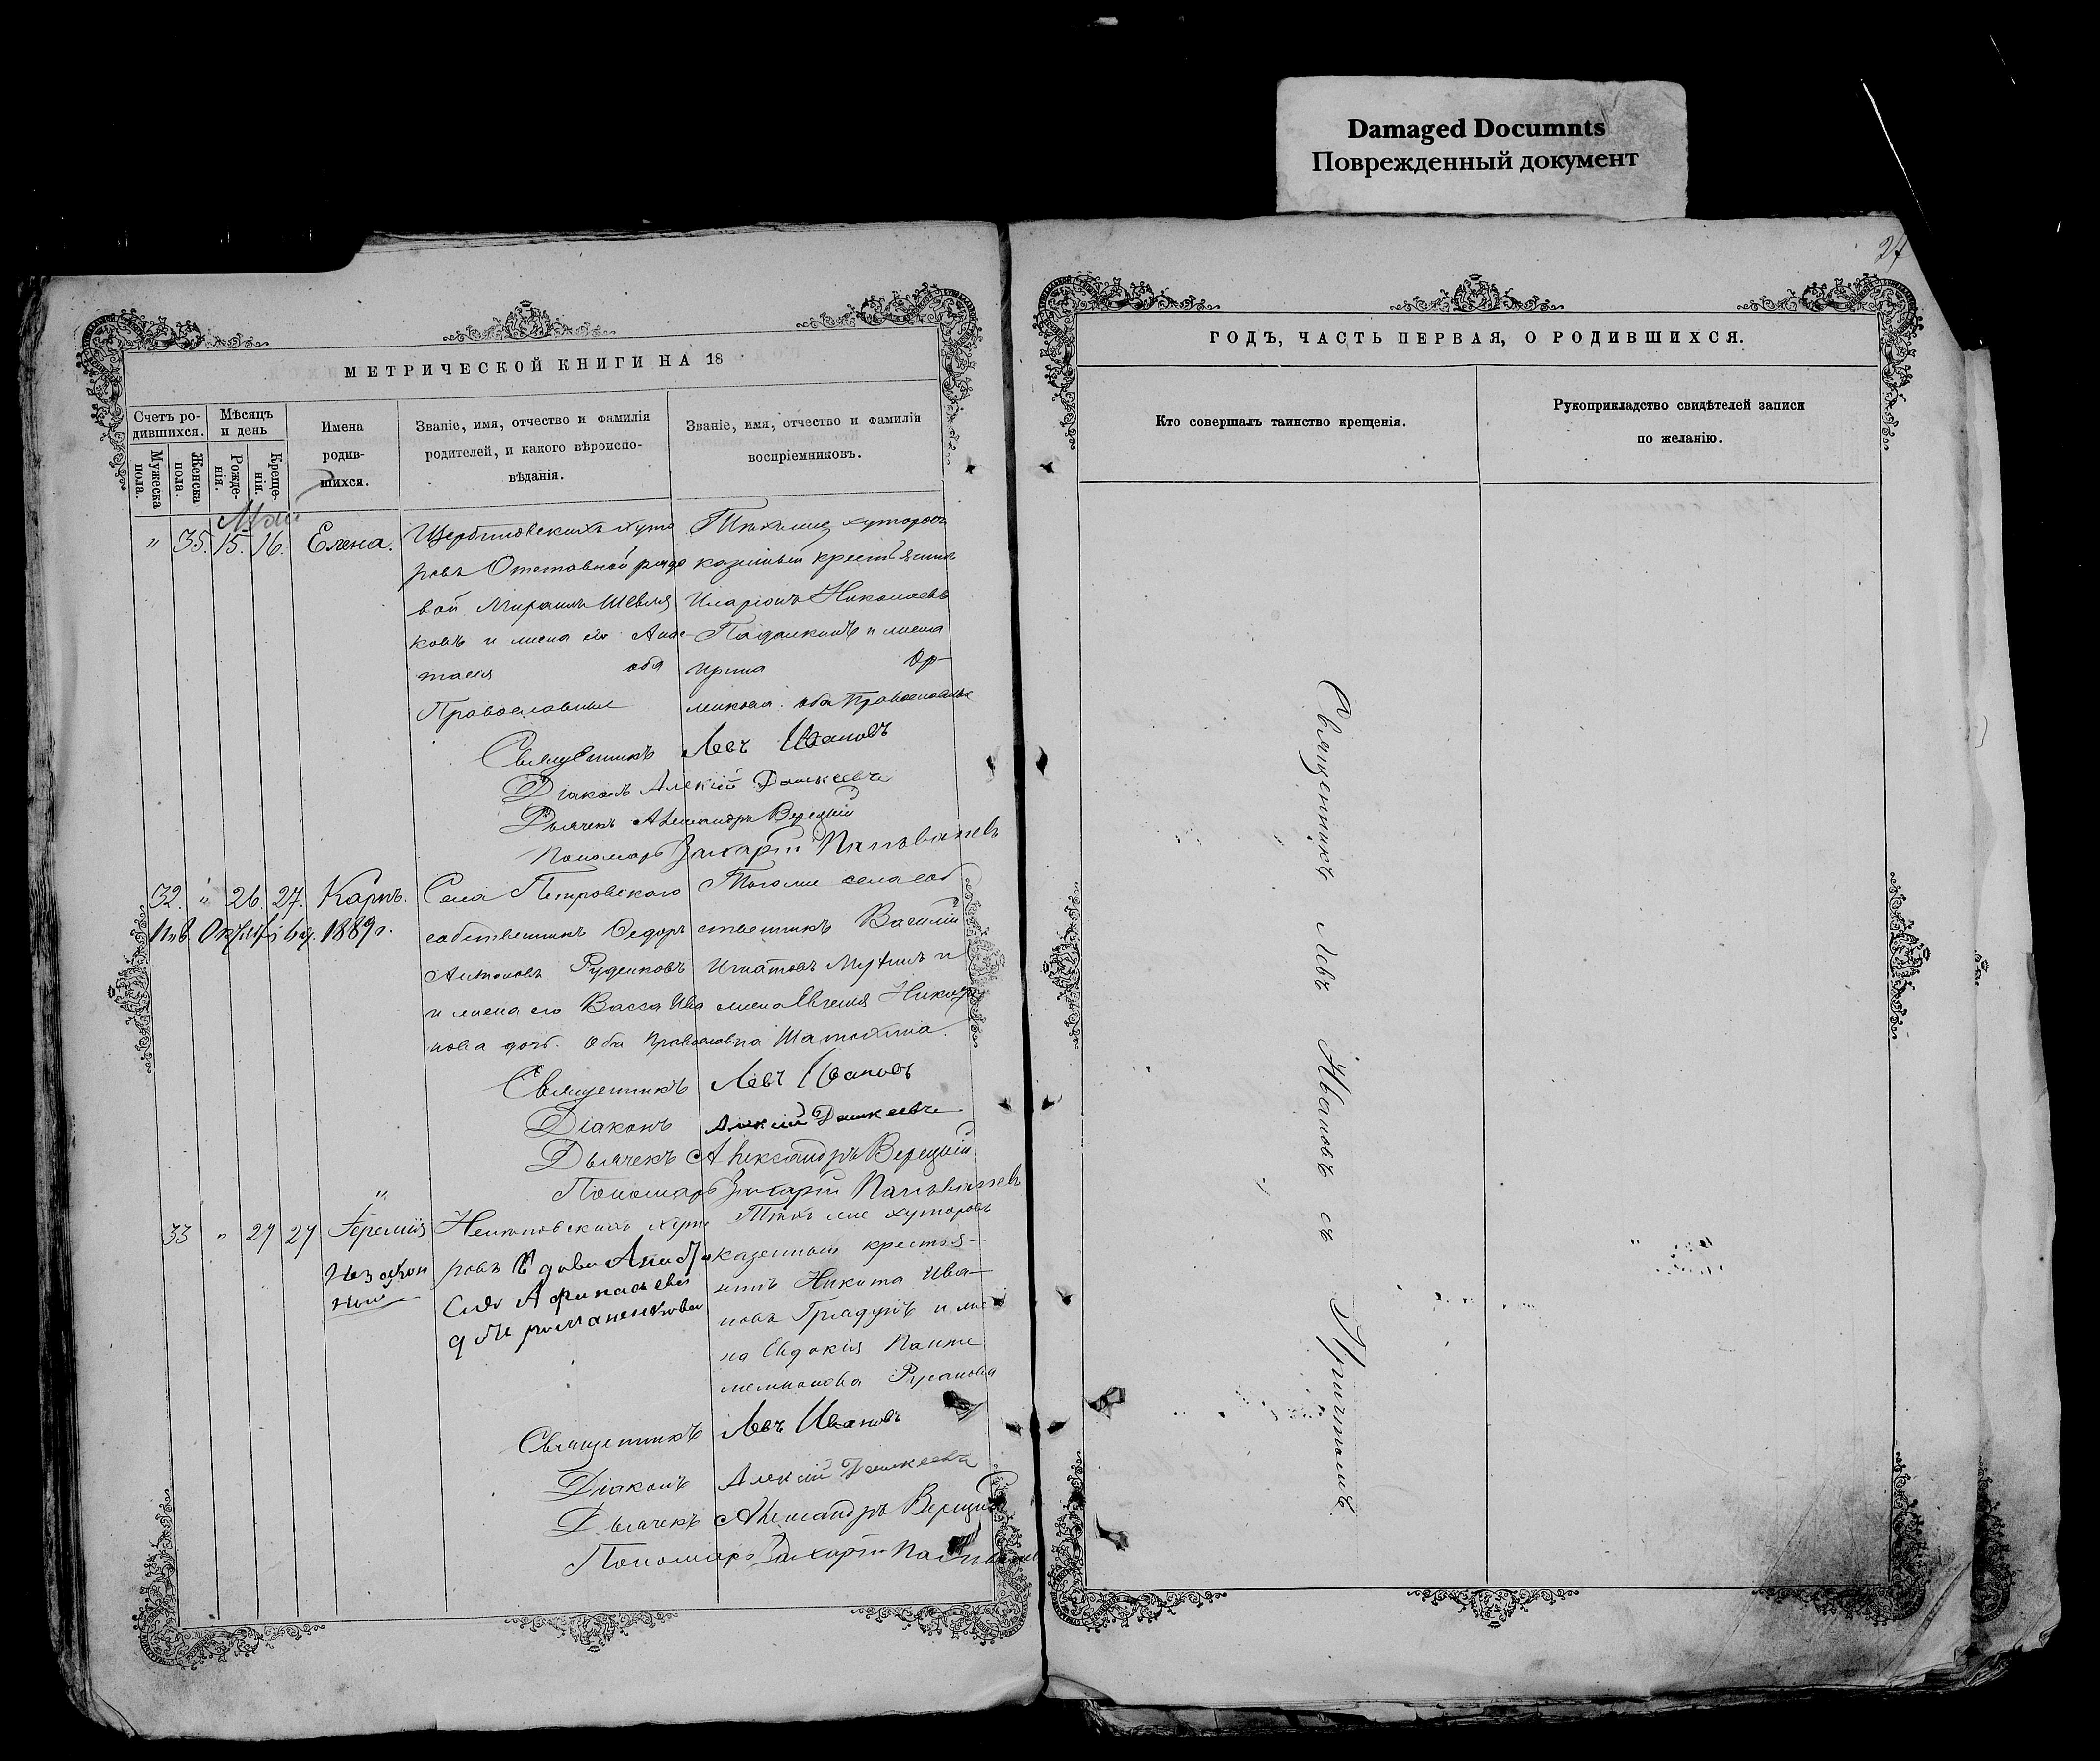 Damaged Documnts
Поврежденный документ
24
МЕТРИЧЕСКОЙ КНИГИ НА 18
Счетъ ро-
дившихся.
Мѣсяцъ
и день
Мужеска
пола.
Женска
пола.
Рожде-
нія.
Креще-
нія.
Имена
родив-
шихся.
Званіе, имя, отчество и фамилія
родителей, и какого вѣроиспо-
вѣданія.
Званіе, имя, отчество и фамилія
воспріемниковъ.
„ 35. 15. 16. Елена.
ровъ Отставной рядо
вой
ковъ и жена его Анас-
оба
Православные
хуторовъ
казенный крестьянинъ
Иларіонъ Николаевъ
и жена
Ирина
оба Православные
Священникъ Левъ Ивановъ
Діаконъ Алексій Дашкевичъ
Дьячекъ Александръ Верецкій
Пономарь Захарій
32. „ 26. 27. Карпъ.
1889 г.
Села Петровскаго
собственникъ Ѳедоръ
Антоновъ Руденковъ
и жена его Васса Ива
нова дочь. Оба
Тогоже села соб
ственникъ Василій
Игнатовъ
жена Евгенія
Шатохина.
Священникъ Левъ Ивановъ
Діаконъ Алексій Дашкевичъ
Дьячекъ Александръ Верецкій
Пономарь Захарій
33 „ 27 27 Іеремія
Незакон
ный
ровъ Вдова Анаста
сія Афанасьева
дочь Романенкова
Тѣхъ же хуторовъ
казенный крестья-
нинъ Никита Ива-
новъ и же
на Евдокія Панте
леимонова
Священникъ Левъ Ивановъ
Діаконъ Алексій Дашкевичъ
Дьячекъ Александръ Верецкій
Пономарь Захарій
ГОДЪ, ЧАСТЬ ПЕРВАЯ, О РОДИВШИХСЯ.
Кто совершалъ таинство крещенія.
Рукоприкладство свидѣтелей записи
по желанію.
Священникъ Левъ Ивановъ съ Причтомъ.